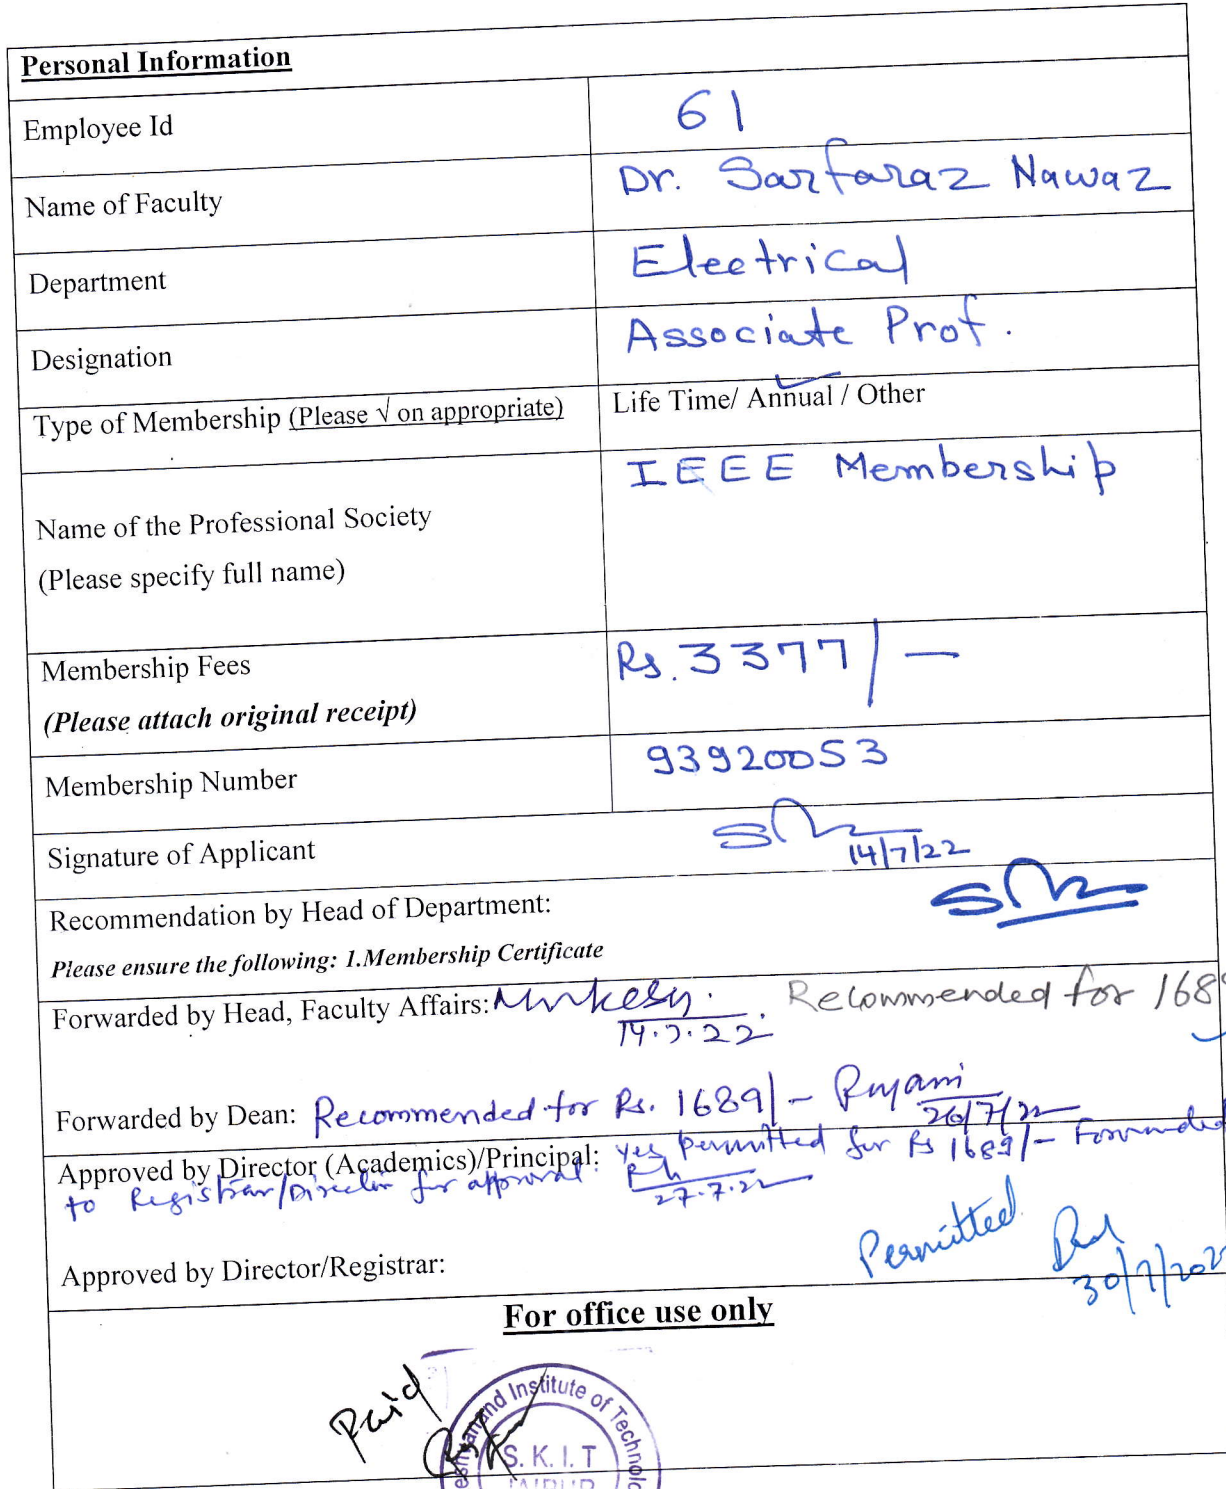 Personal Information
Employee Id 61
Name of Faculty Dr. Sarfaraz Nawaz
Department Electrical
Designation Associate Prof.
Type of Membership (Please √ on appropriate) Life Time/ Annual / Other
Name of the Professional Society IEEE Membership
(Please specify full name)
Membership Fees Rs. 3377/-
(Please attach original receipt)
Membership Number 93920053
Signature of Applicant
14/7/22
Recommendation by Head of Department:
Please ensure the following: 1.Membership Certificate
Forwarded by Head, Faculty Affairs: Mukesh. Recommended for 1689
14.7.22
Forwarded by Dean: Recommended for Rs. 1689/-
26/7/22
Approved by Director (Academics)/Principal: Yes permitted for Rs 1689/- Forwarded
to Registrar/Director for approval
27.7.22
Permitted
Approved by Director/Registrar:
30/7/202
For office use only
Paid
and Institute of Technolo
S. K. I. T
JAIPUR